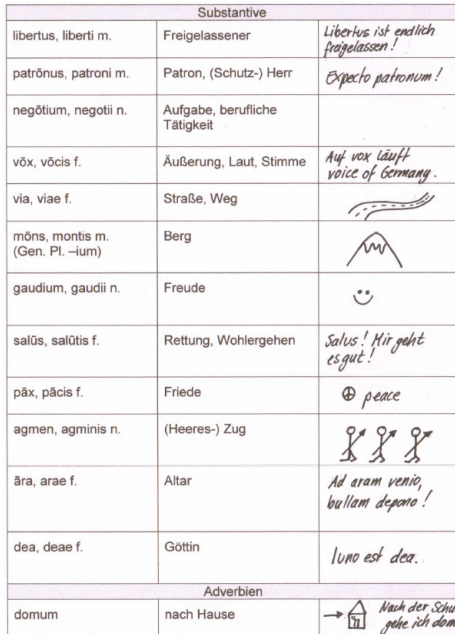 Substantive
libertus, liberti m. Freigelassener Libertus ist endlich
fragelassen!
patrōnus, patroni m. Patron, (Schutz-) Herr Expecto patronum!
negōtium, negotii n. Aufgabe, berufliche
Tätigkeit
vōx, vōcis f. Äußerung, Laut, Stimme Auf vox läuft
voice of Germany.
via, viae f. Straße, Weg
mōns, montis m. Berg
(Gen. Pl. –ium)
gaudium, gaudii n. Freude
salūs, salūtis f. Rettung, Wohlergehen Salus! Mir geht
es gut!
pāx, pācis f. Friede peace
agmen, agminis n. (Heeres-) Zug
āra, arae f. Altar Ad aram venio,
bullam depono!
dea, deae f. Göttin Iuno est dea.
Adverbien
domum nach Hause Nach der Schu
gehe ich dom